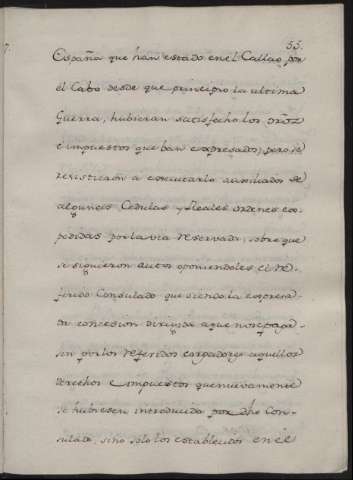 55.
España que han estado en el Callao por
el Cabo desde que principio la ultima
Guerra, hubieran satisfecho los dros
e impuestos que ban expresados; pero se
resistieron a executarlo auxiliados de
algunas Cedulas y Reales ordenes ex-
pedidas por la via reservada, sobre que
se siguieron autos oponiendoles el re-
ferido Consulado que siendo la expresa-
da concesion dirigida a que no se paga-
sen por los referidos cargadores aquellos
derechos e impuestos que nuevamente
se hubiesen introducido por dho Con-
sulado, sino solo los establecidos en el